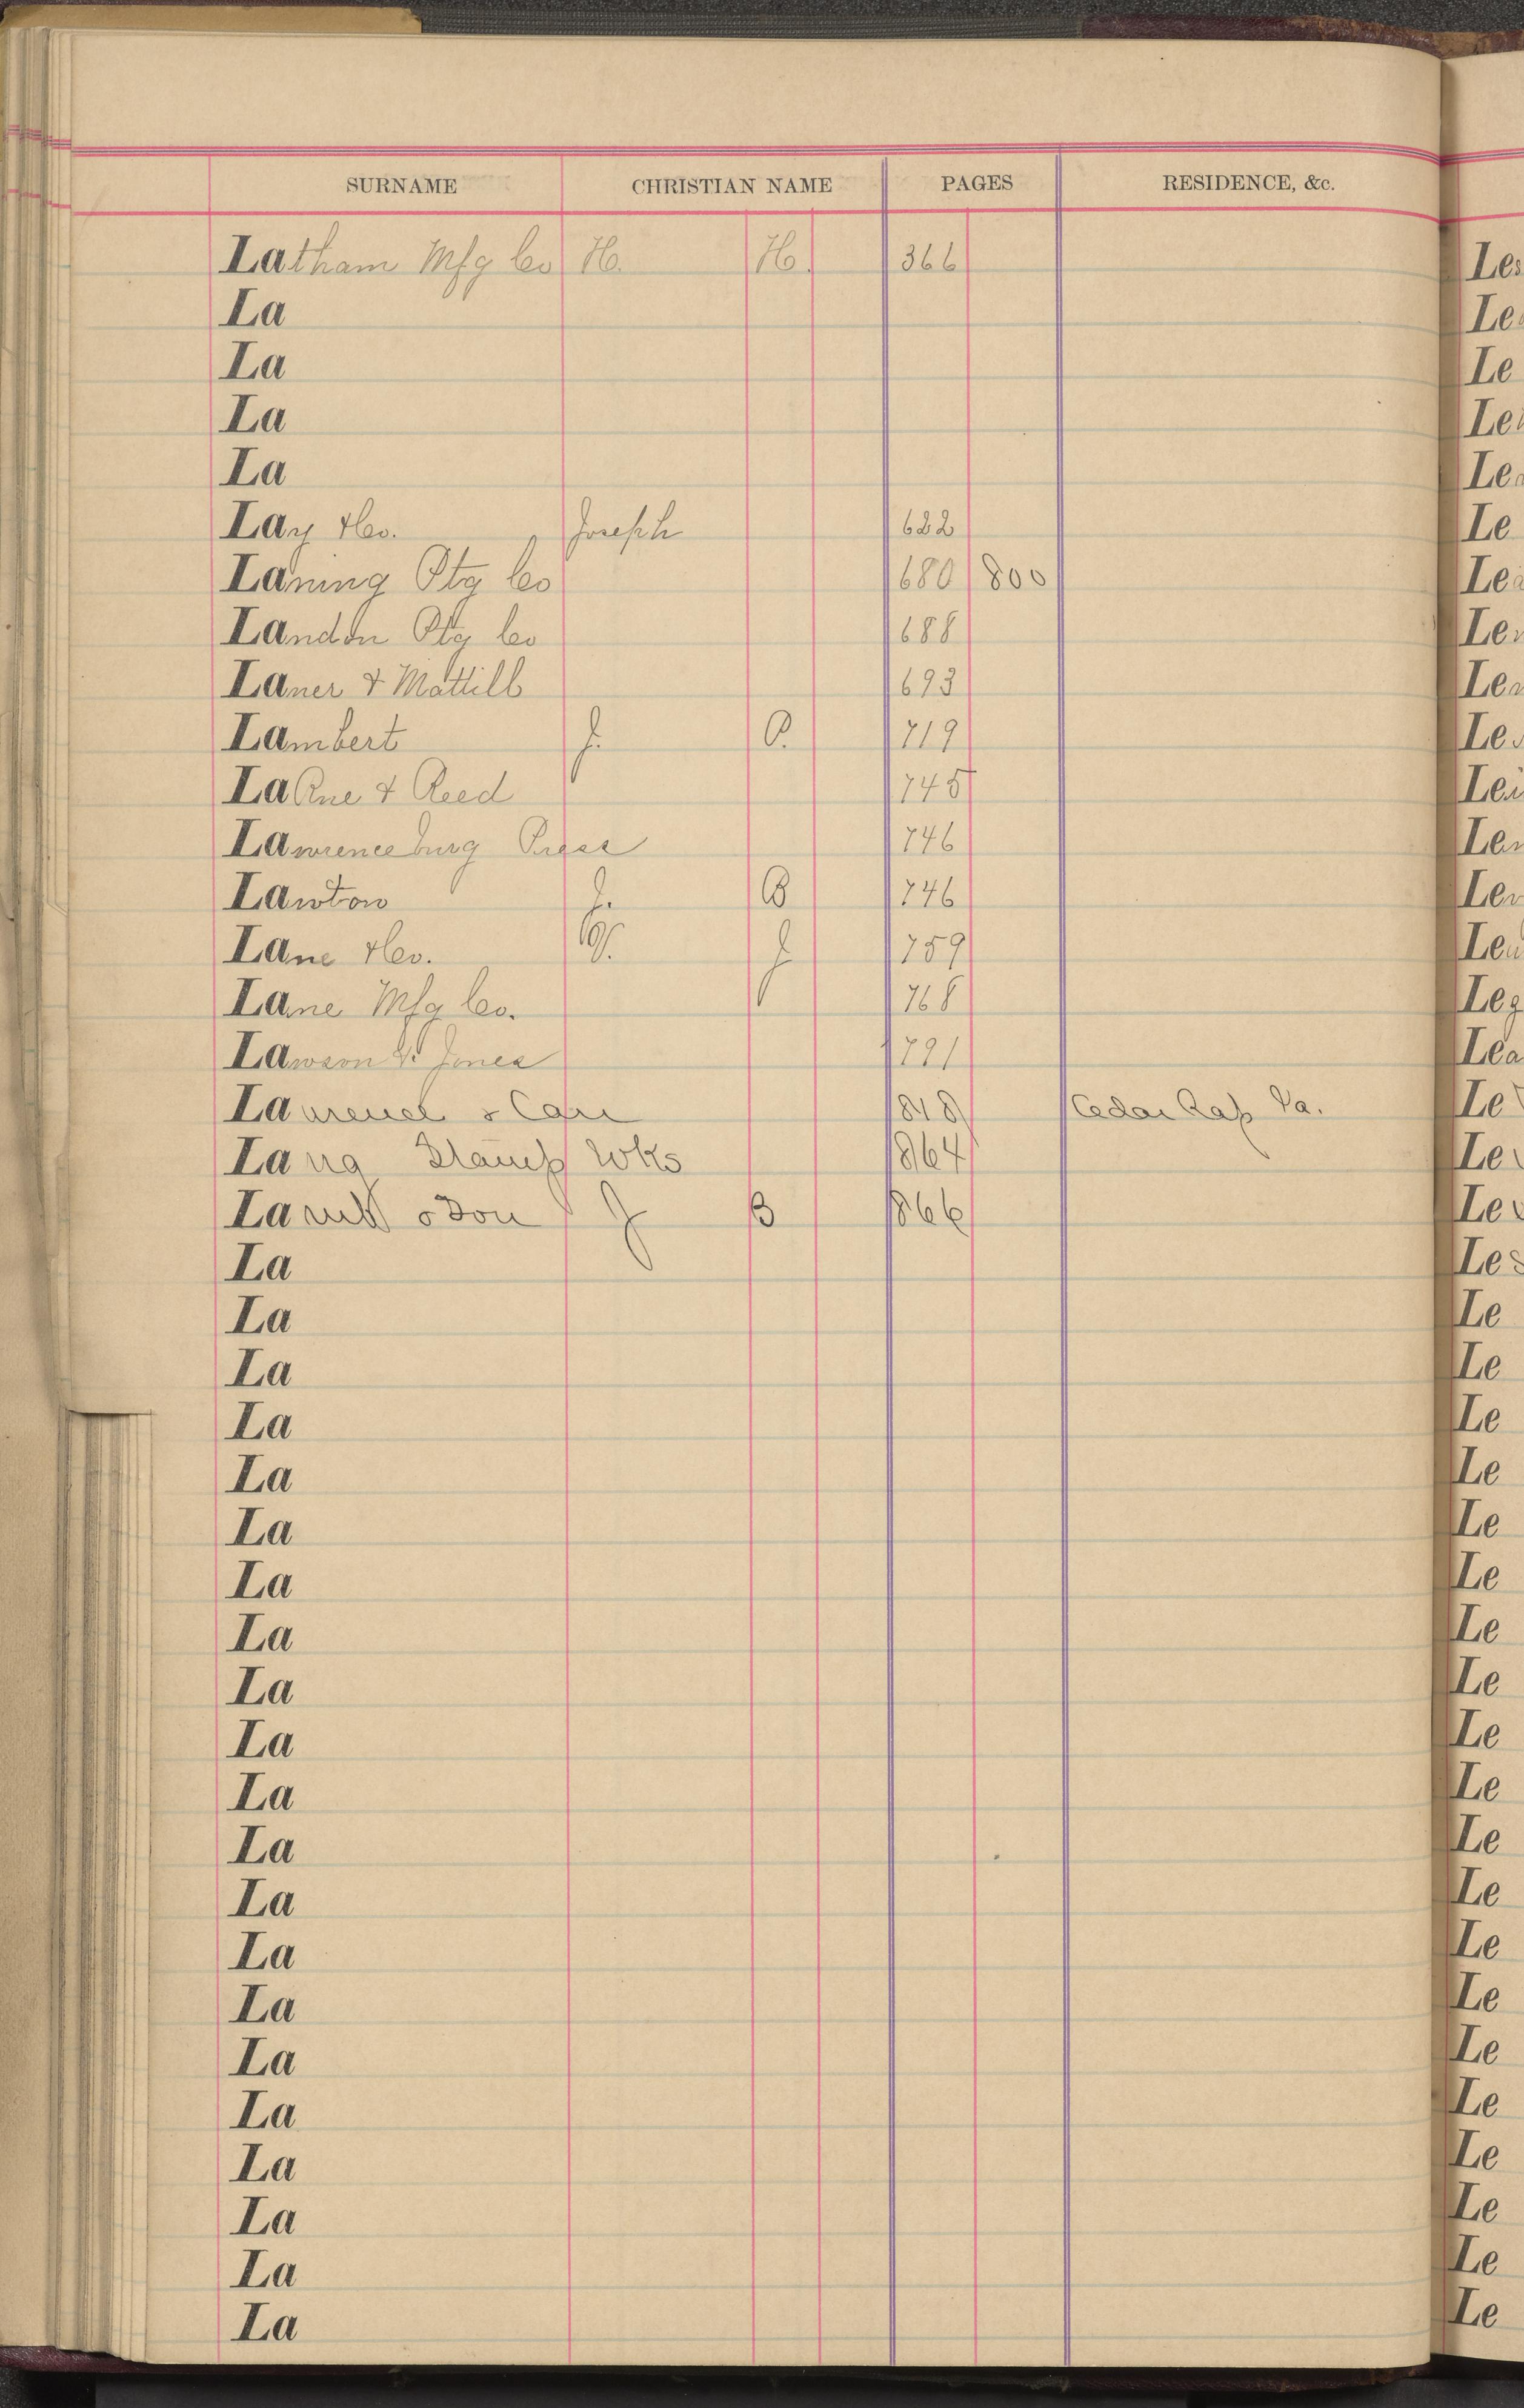 SURNAME CHRISTIAN NAME PAGES RESIDENCE, &c.
Latham Mfg Co H. H. 366
La
La
La
La
Lay & Co. Joseph 622
Laning Ptg Co 680 800
Landon Ptg Co 688
Laner & Mattill 693
Lambert J. P. 719
LaRue & Reed 745
Lawrenceburg Press 746
Lawton J. B 746
Lane & Co. W. J 759
Lane Mfg Co. 768
Lawson & Jones 791
La & Carr 818 Cedar Rap Ia.
Lang Stamp Wks 864
Lamb & Son J B 866
La
La
La
La
La
La
La
La
La
La
La
La
La
La
La
La
La
La
La
La
La
Le
Le
Le
Le
Le
Le
Le
Le
Le
Le
Lei
Le
Le
Le
Leg
Lea
Le
Le
Le
Les
Le
Le
Le
Le
Le
Le
Le
Le
Le
Le
Le
Le
Le
Le
Le
Le
Le
Le
Le
Le